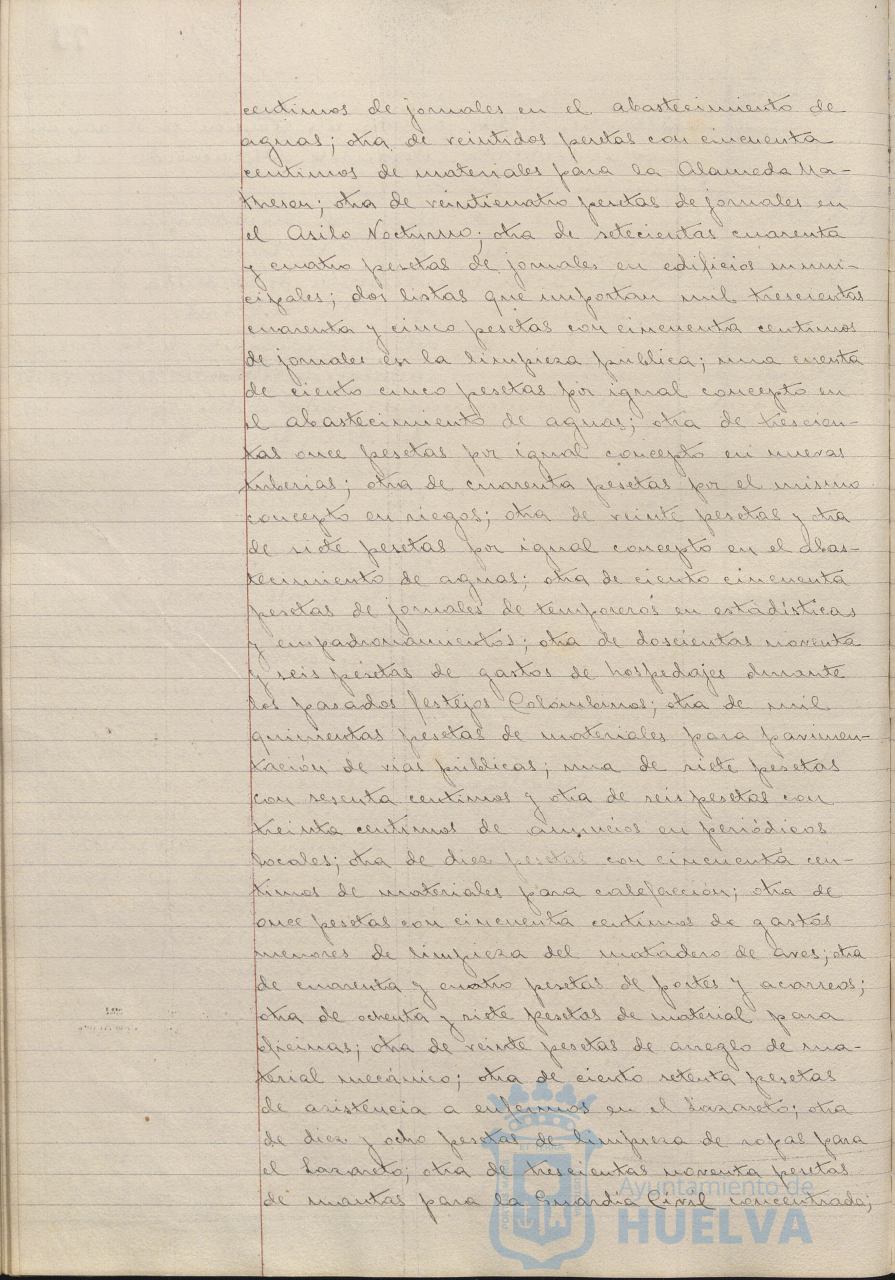 centimos de jornales en el abastecimiento de
aguas; otra de veintidos pesetas con cincuenta
centimos de materiales para la Alameda Ma-
theson; otra de veinticuatro pesetas de jornales en
el Asilo Nocturno; otra de setecientas cuarenta
y cuatro pesetas de jornales en edificios muni-
cipales; dos listas que importan mil trescientas
cuarenta y cinco pesetas con cincuenta centimos
de jornales en la limpieza pública; una cuenta
de ciento cinco pesetas por igual concepto en
el abastecimiento de aguas; otra de trescien-
tas once pesetas por igual concepto en nuevas
tuberias; otra de cuarenta pesetas por el mismo
concepto en riegos; otra de veinte pesetas y otra
de siete pesetas por igual concepto en el abas-
tecimiento de aguas; otra de ciento cincuenta
pesetas de jornales de temporeros en estadísticas
y empadronamientos; otra de doscientas noventa
y seis pesetas de gastos de hospedajes durante
los pasados festejos Colombinos; otra de mil
quinientas pesetas de materiales para pavimen-
tación de vias públicas; una de siete pesetas
con sesenta centimos y otra de seis pesetas con
treinta centimos de anuncios en periódicos
locales; otra de diez pesetas con cincuenta cen-
timos de materiales para calefacción; otra de
once pesetas con cincuenta centimos de gastos
menores de limpieza del matadero de aves; otra
de cuarenta y cuatro pesetas de portes y acarreos;
otra de ochenta y siete pesetas de material para
oficinas; otra de veinte pesetas de arreglo de ma-
terial mecánico; otra de ciento setenta pesetas
de asistencia a enfermos en el Lazareto; otra
de diez y ocho pesetas de limpieza de ropas para
el Lazareto; otra de trescientas noventa pesetas
de mantas para la Guardia Civil concentrada;
Ayuntamiento de
HUELVA